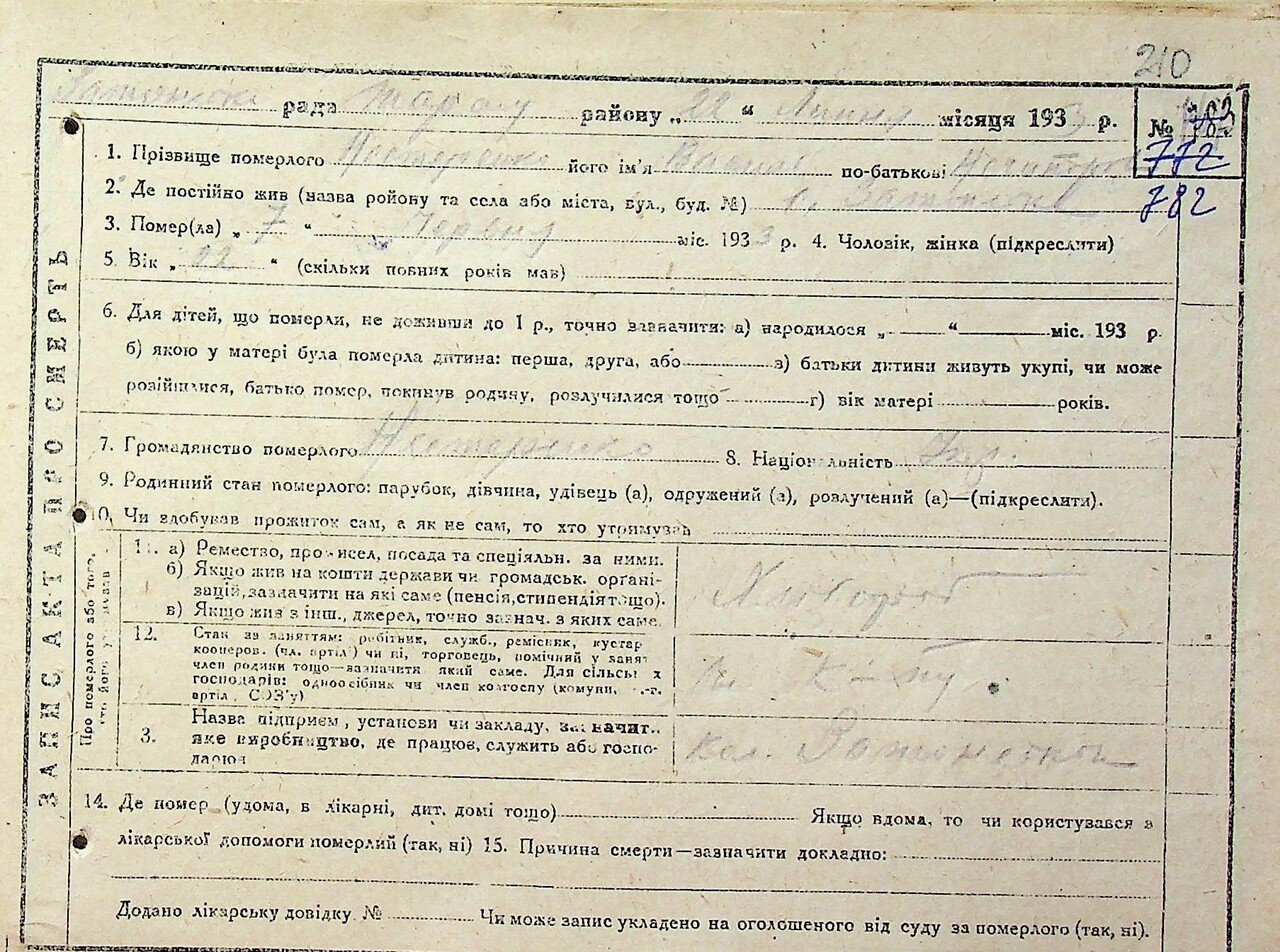 210
рада районену „22“ Липня місяця 1933 р. №
772
782
1. Прізвище померлого Нестеренко його ім'я Василь по-батькові
2. Де постійно жив (назва ройону та села або міста, вул., буд. №) с.
3. Помер(ла) „7“ Червня міс. 1933 р. 4. Чоловік, жінка (підкреслити)
5. Вік „22“ (скільки повних років мав)
6. Для дітей, що померли, не доживши до 1 р., точно зазначити: а) народилося „ “ міс. 193 р.
б) якою у матері була померла дитина: перша, друга, або в) батьки дитини живуть укупі, чи може
розійшлися, батько помер, покинув родину, розлучилися тощо г) вік матері років.
7. Громадянство померлого Нестеренко 8. Національність Укр.
9. Родинний стан померлого: парубок, дівчина, удівець (а), одружений (а), розлучений (а)—(підкреслити).
10. Чи здобував прожиток сам, а як не сам, то хто утримував
ЗАПИС АКТА ПРО СМЕРТЬ
Про померлого або того,
хто його утримував
11. а) Ремество, промисел, посада та спеціяльн. за ними.
б) Якщо жив на кошти держави чи громадськ. орґані-
зацій, зазначити на які саме (пенсія, стипендія тощо).
в) Якщо жив з інш., джерел, точно зазнач. з яких саме.
Хлібороб
12. Стан за заняттям: робітник, служб., ремісник, кустар
кооперов. (чл. артілі) чи ні, торговець, помічний у занят
член родини тощо—зазначити який саме. Для сільськ х
господарів: одноосібник чи член колгоспу (комуни, с.-г.
артіл, СОЗ'у)
13. Назва підприєм, установи чи закладу, зазначит.,
яке виробництво, де працює, служить або госпо-
дарює
Кол.
14. Де помер (удома, в лікарні, дит. домі тощо) Якщо вдома, то чи користувався з
лікарської допомоги померлий (так, ні) 15. Причина смерти—зазначити докладно:
Додано лікарську довідку № Чи може запис укладено на оголошеного від суду за померлого (так, ні).